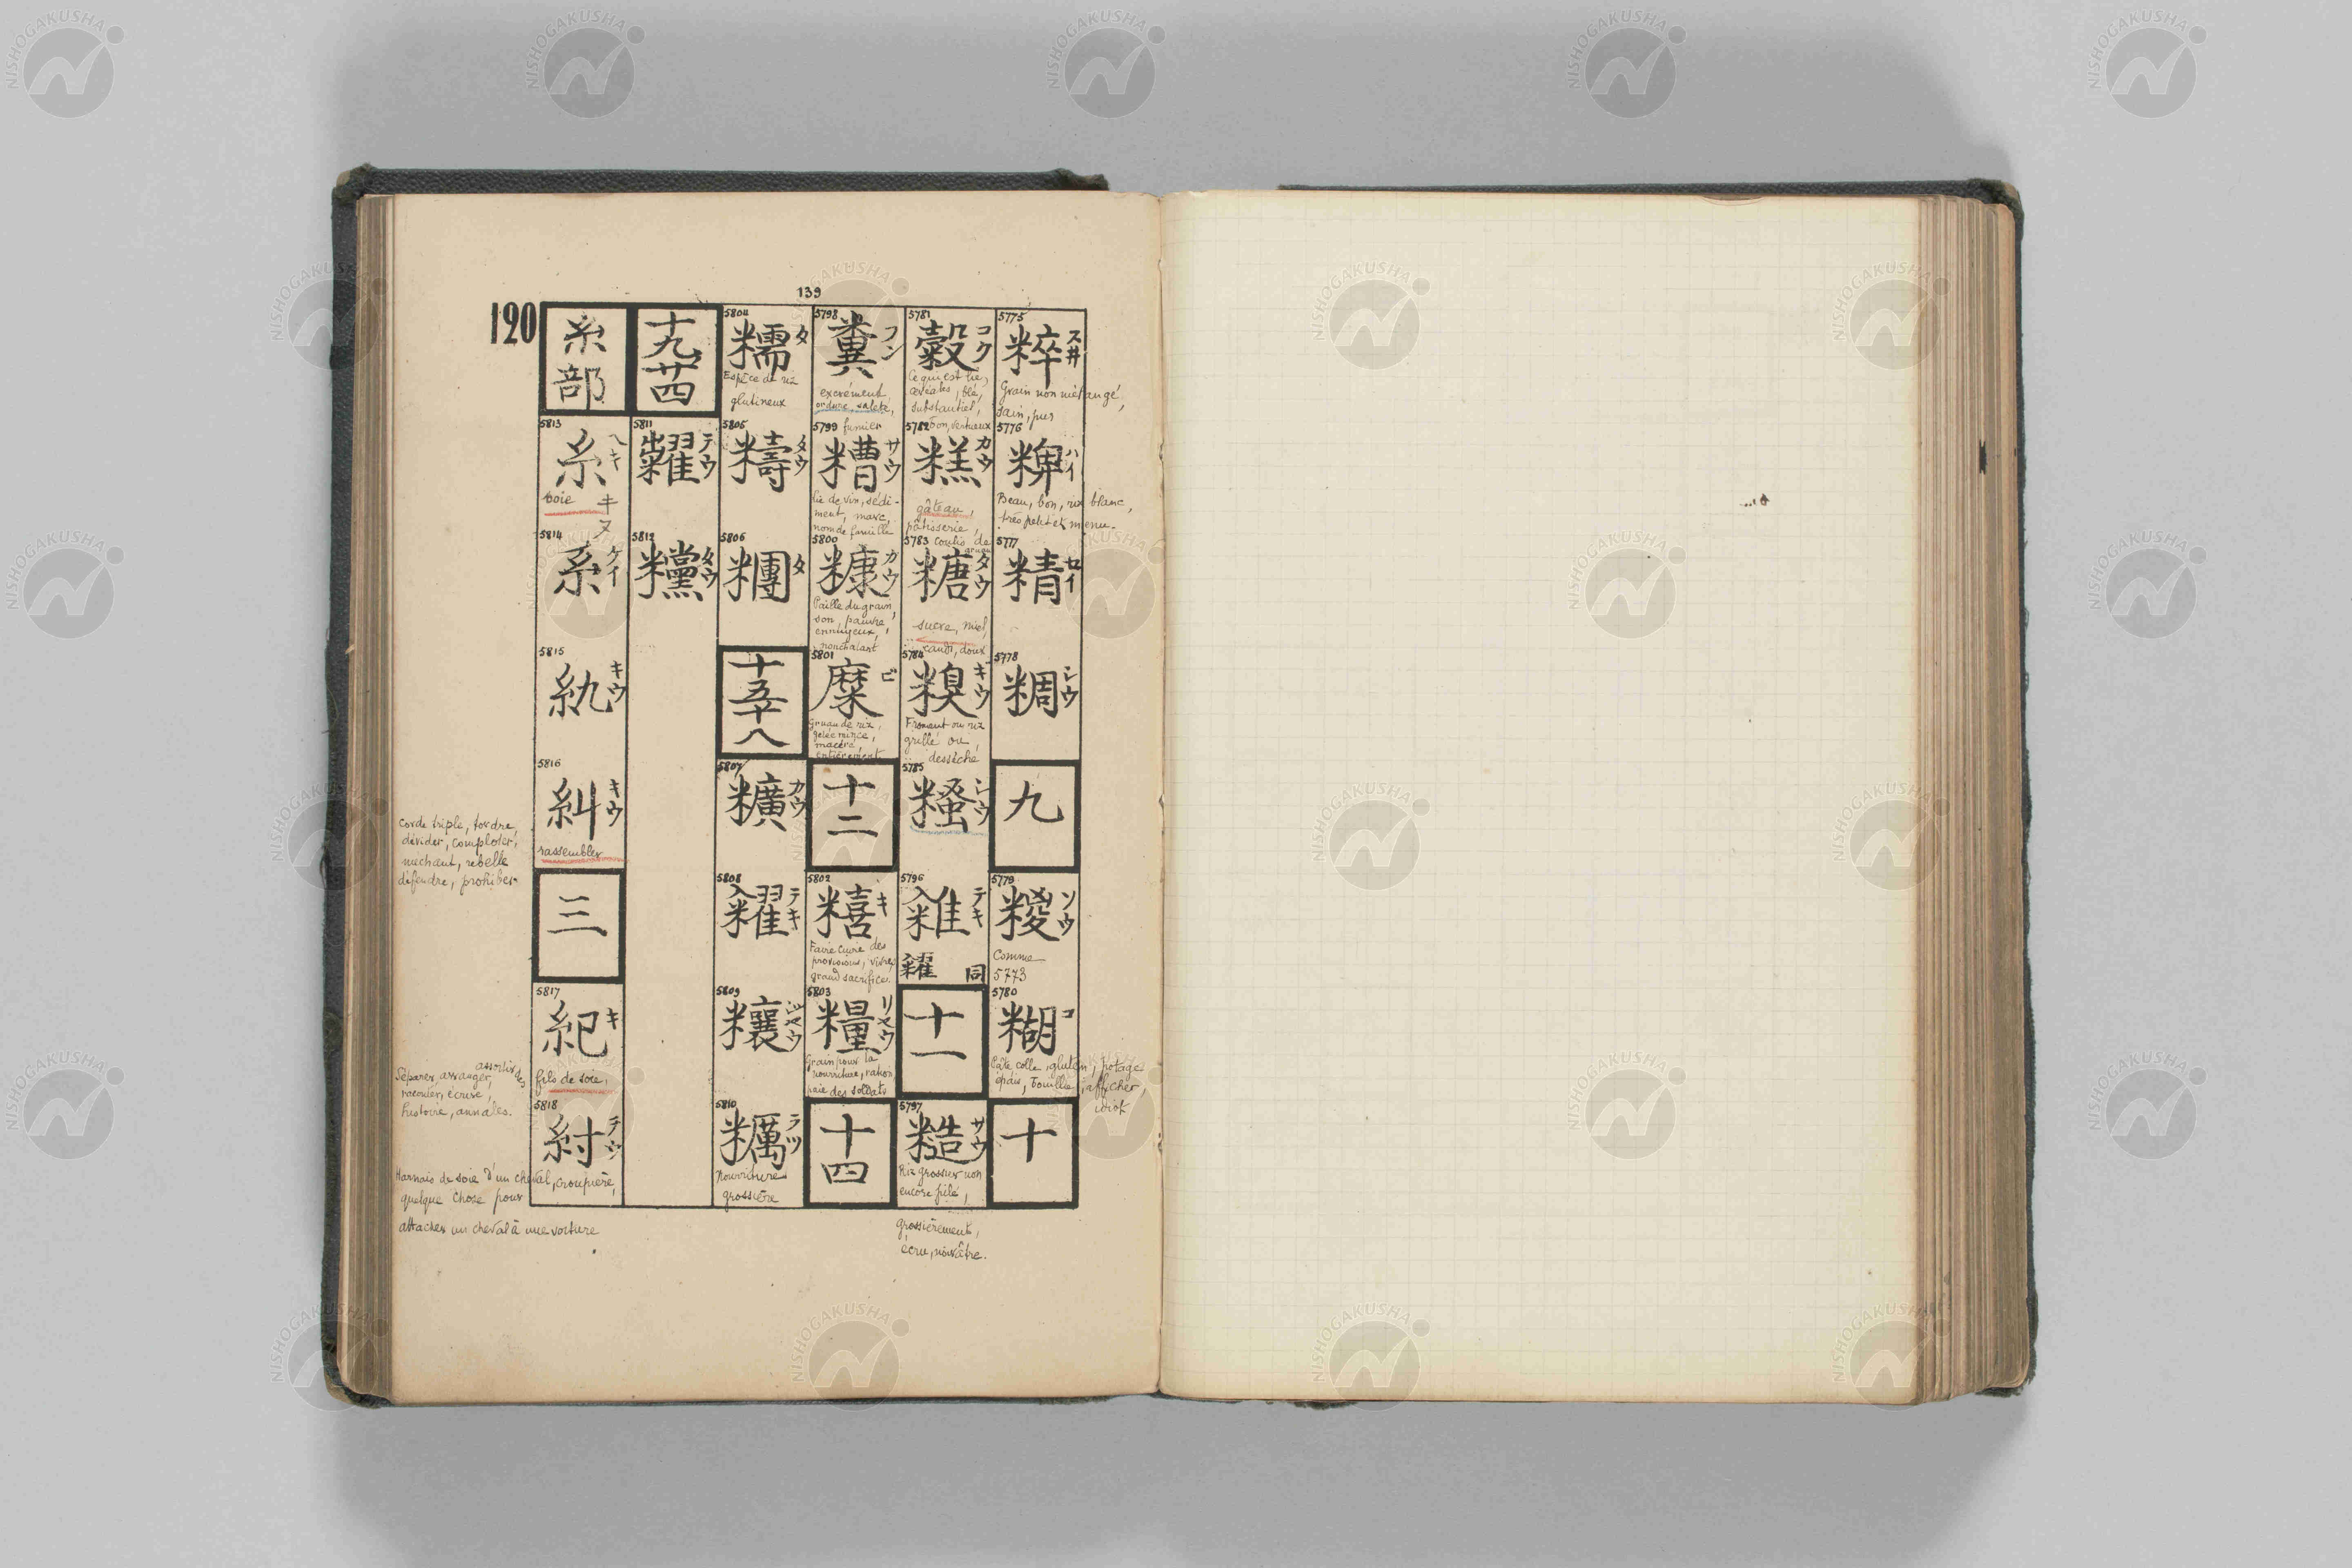 139
120
5775
粹 スヰ
Grain non mélangé,
sain, pur
5776
粺 ハイ
Beau, bon, riz blanc,
très petit et menu.
5777
精 セイ
5778
粡 シウ
九
5779
糉 ソウ
Comme
5773
5780
糊 コ
Pâte colle, gluten, potage
épais, bouillie, afficher,
idiot
十
5781
穀 コク
Ce qui est lié,
céréales, blé,
substantiel,
bon, vertueux
5782
糕 カウ
gâteau,
pâtisserie,
coulis de
gruau
5783
糖 タウ
sucre, miel,
candi, doux
5784
糗 キウ
Froment ou riz
grillé ou
desséché
5785
糔 シウ
5796
糴 テキ
同
十一
5797
糙 サウ
Riz grossier non
encore pilé,
grossièrement,
écru, noirâtre.
5798
糞 フン
excrément,
ordure, saleté,
fumier
5799
糟 サウ
lie de vin, sédi-
ment, marc,
nom de famille
5800
糠 カウ
Paille du grain,
son, pauvre,
ennuyeux,
nonchalant
5801
糜 ビ
Gruau de riz,
gelée mince,
macéré,
entièrement
十二
5802
糦 キ
Faire cuire des
provisions, vivres,
grand sacrifice.
5803
糧 リヤウ
Grain pour la
nourriture, ration
paie des soldats
十四
5804
糯 タ
Espèce de riz
glutineux
5805
𥼽 タウ
5806
糰 タ
十五十八
5807
𥽇 カウ
5808
糴 テキ
5809
𥽬 ジヤウ
5810
糲 ラツ
Nourriture
grossière
十九廿四
5811
糶 テウ
5812
糷 タウ
糸部
5813
糸 ヘキ
soie
キヌ
5814
系 ケイ
5815
糺 キウ
5816
糾 キウ
rassembler
corde triple, tordre,
dévider, comploter,
méchant, rebelle
défendre, prohiber
三
5817
紀 キ
fils de soie,
assortir des
Séparer, arranger,
raconter, écrire,
histoire, annales.
5818
紂 テウ
Harnais de soie d'un cheval, croupière,
quelque chose pour
attacher un cheval à une voiture